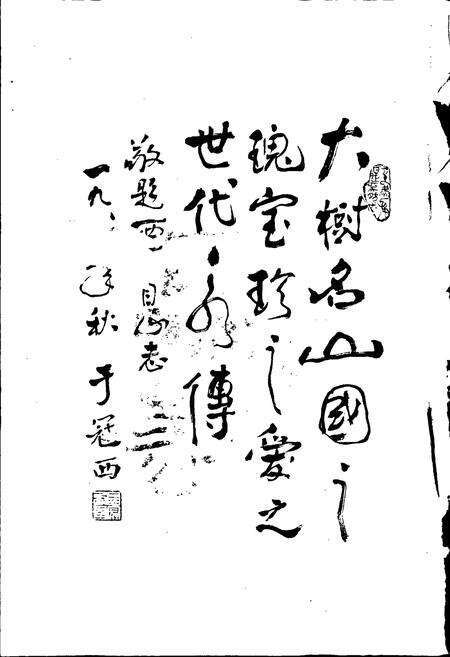 大樹名山國之
瑰宝珍之愛之
世代永傳
敬题西目山志
一九年秋 于冠西